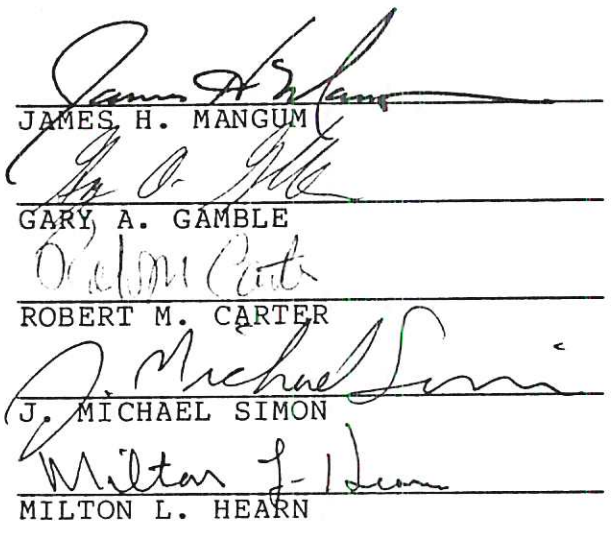 James H Mangum
JAMES H. MANGUM
Gary A. Gamble
GARY A. GAMBLE
Robt M Carter
ROBERT M. CARTER
J. Michael Simon
J. MICHAEL SIMON
Milton L. Hearn
MILTON L. HEARN